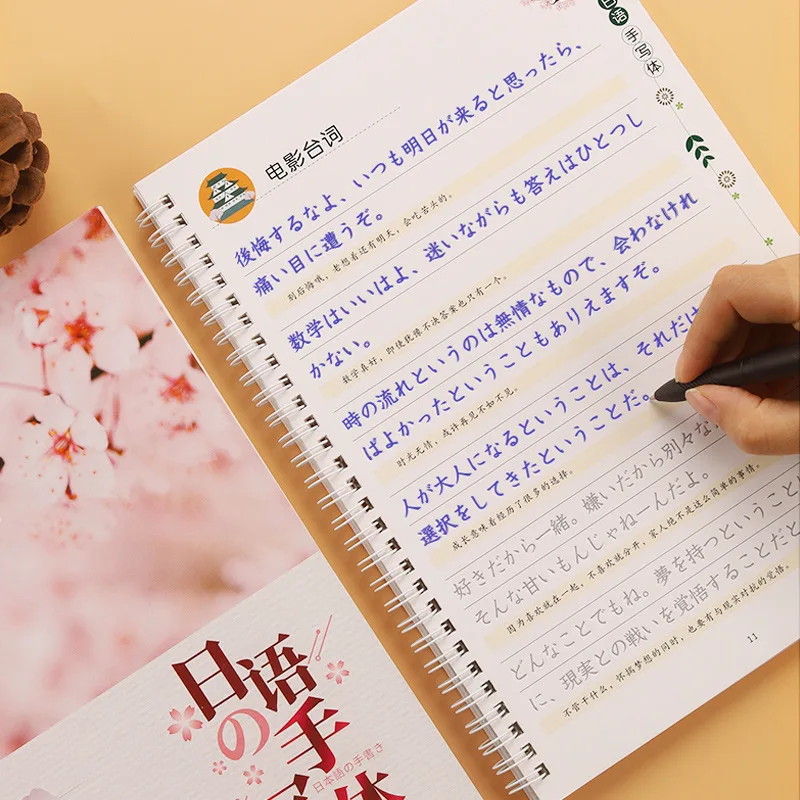 日语
手写体
电影台词
後悔するなよ、いつも明日が来ると思ったら、
痛い目に遭うぞ。
别后悔哦，老想着还有明天，会吃苦头的。
数学はいいはよ、迷いながらも答えはひとつし
かない。
数学真好，即使犹豫不决答案也只有一个。
時の流れというのは無情なもので、会わなけれ
ばよかったということもありえますぞ。
时光无情，或许再见不如不见。
人が大人になるということは、それだけ
選択をしてきたということだ。
成长意味着经历了很多的选择。
好きだから一緒。嫌いだから別々な
そんな甘いもんじゃねーんだよ。
因为喜欢就在一起，不喜欢就分开，家人绝不是这么简单的事情。
どんなことでもね。夢を持つということ
に、現実との戦いを覚悟することだと
不管干什么，怀揣梦想的同时，也要有与现实对抗的觉悟。
11
日语
の
手
日本語の手書き
体